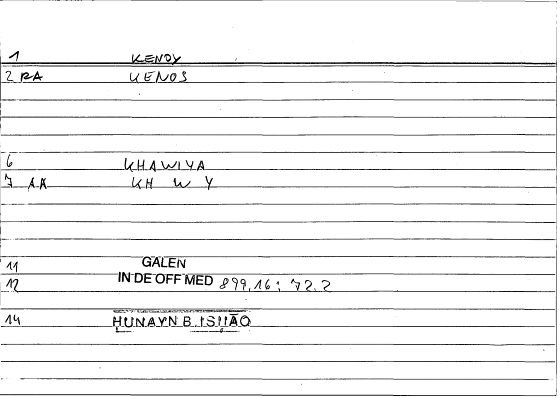 1 KENDY
2 RA KENOS
6 KHAWIYA
7 AA KH W Y
11 GALEN
12 IN DE OFF MED 899.16: 72.2
14 HUNAYN B. ISHĀQ